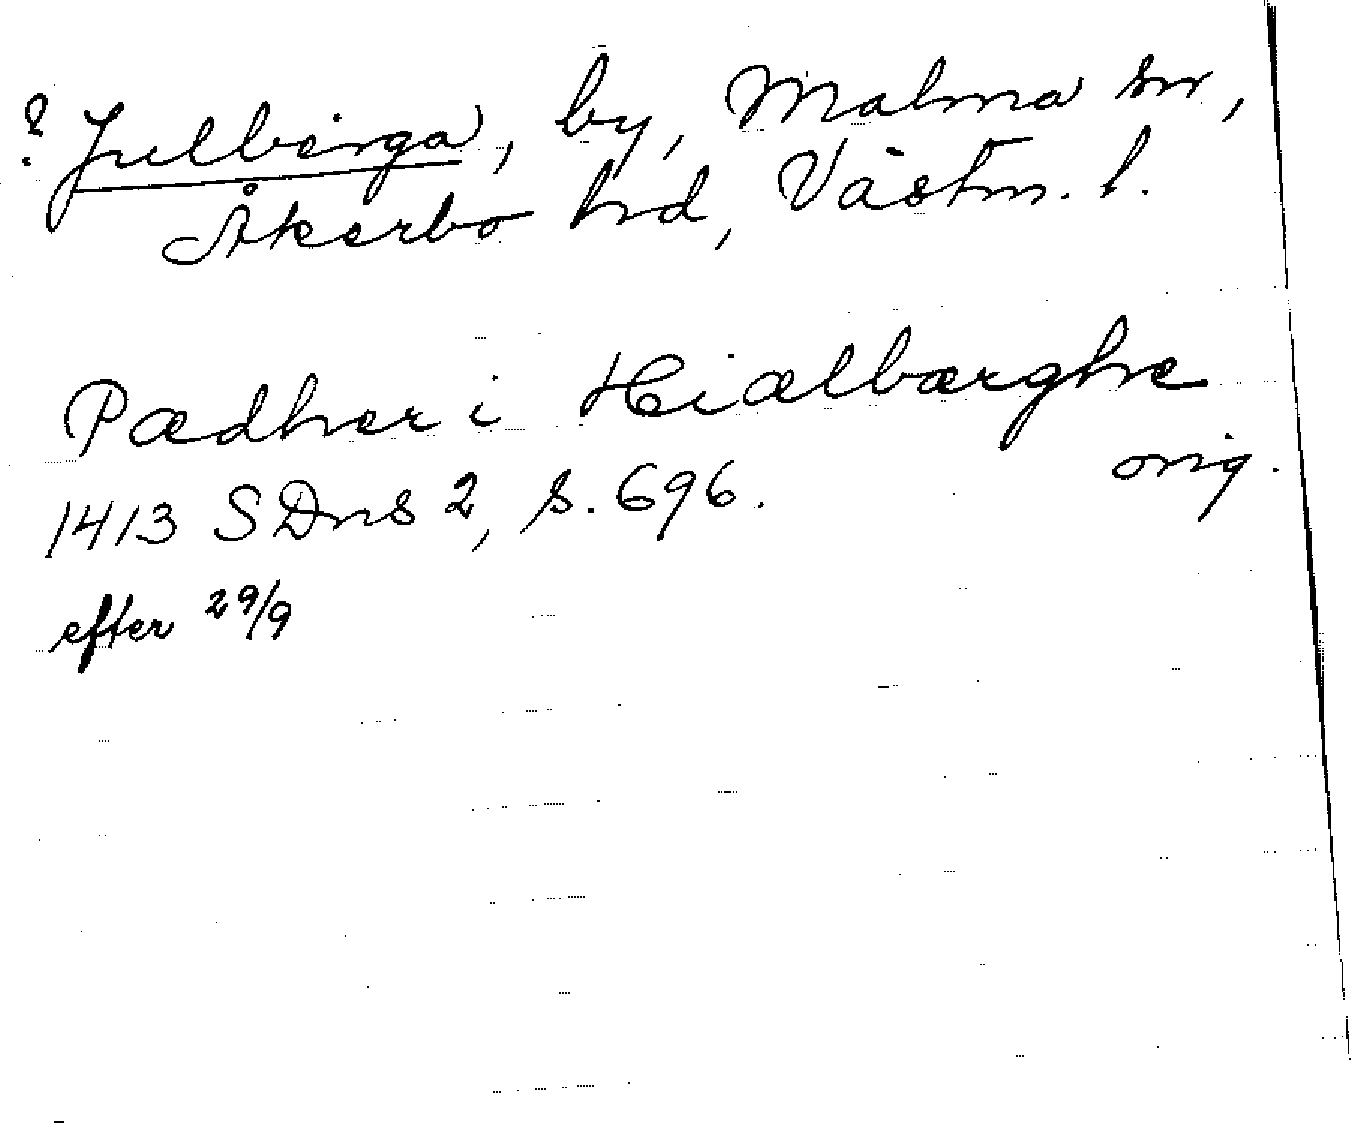 ? Julberga, by, Malma sn,
Åkerbo hd, Västm. l.
Pædher i Hiælbærghe
orig.
1413 SDns 2, s. 696.
efter 29/9